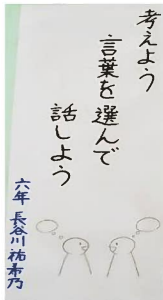 考えよう
言葉を選んで
話しよう
六年 長谷川祐希乃